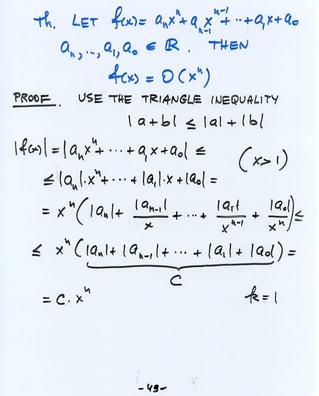 Th. LET f(x)= aₙxⁿ+aₙ₋₁xⁿ⁻¹+··+a₁x+a₀
aₙ,··,a₁,a₀ ∈ ℝ. THEN
f(x) = O(xⁿ)
PROOF. USE THE TRIANGLE INEQUALITY
|a+b| ≤ |a|+|b|
|f(x)|=|aₙxⁿ+ ··· +a₁x+a₀| ≤ (x>1)
≤|aₙ|·xⁿ+···+|a₁|·x+|a₀| =
= xⁿ(|aₙ|+ |aₙ₋₁|/x + ··· + |a₁|/xⁿ⁻¹ + |a₀|/xⁿ) ≤
≤ xⁿ(|aₙ|+|aₙ₋₁|+ ··· + |a₁|+|a₀|) =
C
= C·xⁿ k=1
-49-